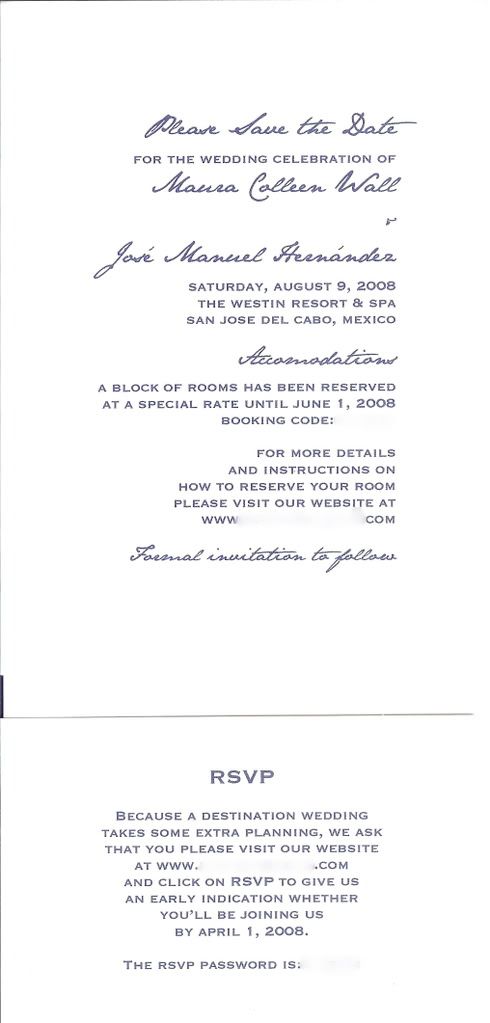 Please Save the Date
FOR THE WEDDING CELEBRATION OF
Maura Colleen Wall
&
José Manuel Hernández
SATURDAY, AUGUST 9, 2008
THE WESTIN RESORT & SPA
SAN JOSE DEL CABO, MEXICO
Accomodations
A BLOCK OF ROOMS HAS BEEN RESERVED
AT A SPECIAL RATE UNTIL JUNE 1, 2008
BOOKING CODE:
FOR MORE DETAILS
AND INSTRUCTIONS ON
HOW TO RESERVE YOUR ROOM
PLEASE VISIT OUR WEBSITE AT
WWW COM
Formal invitation to follow
RSVP
BECAUSE A DESTINATION WEDDING
TAKES SOME EXTRA PLANNING, WE ASK
THAT YOU PLEASE VISIT OUR WEBSITE
AT WWW. .COM
AND CLICK ON RSVP TO GIVE US
AN EARLY INDICATION WHETHER
YOU'LL BE JOINING US
BY APRIL 1, 2008.
THE RSVP PASSWORD IS: